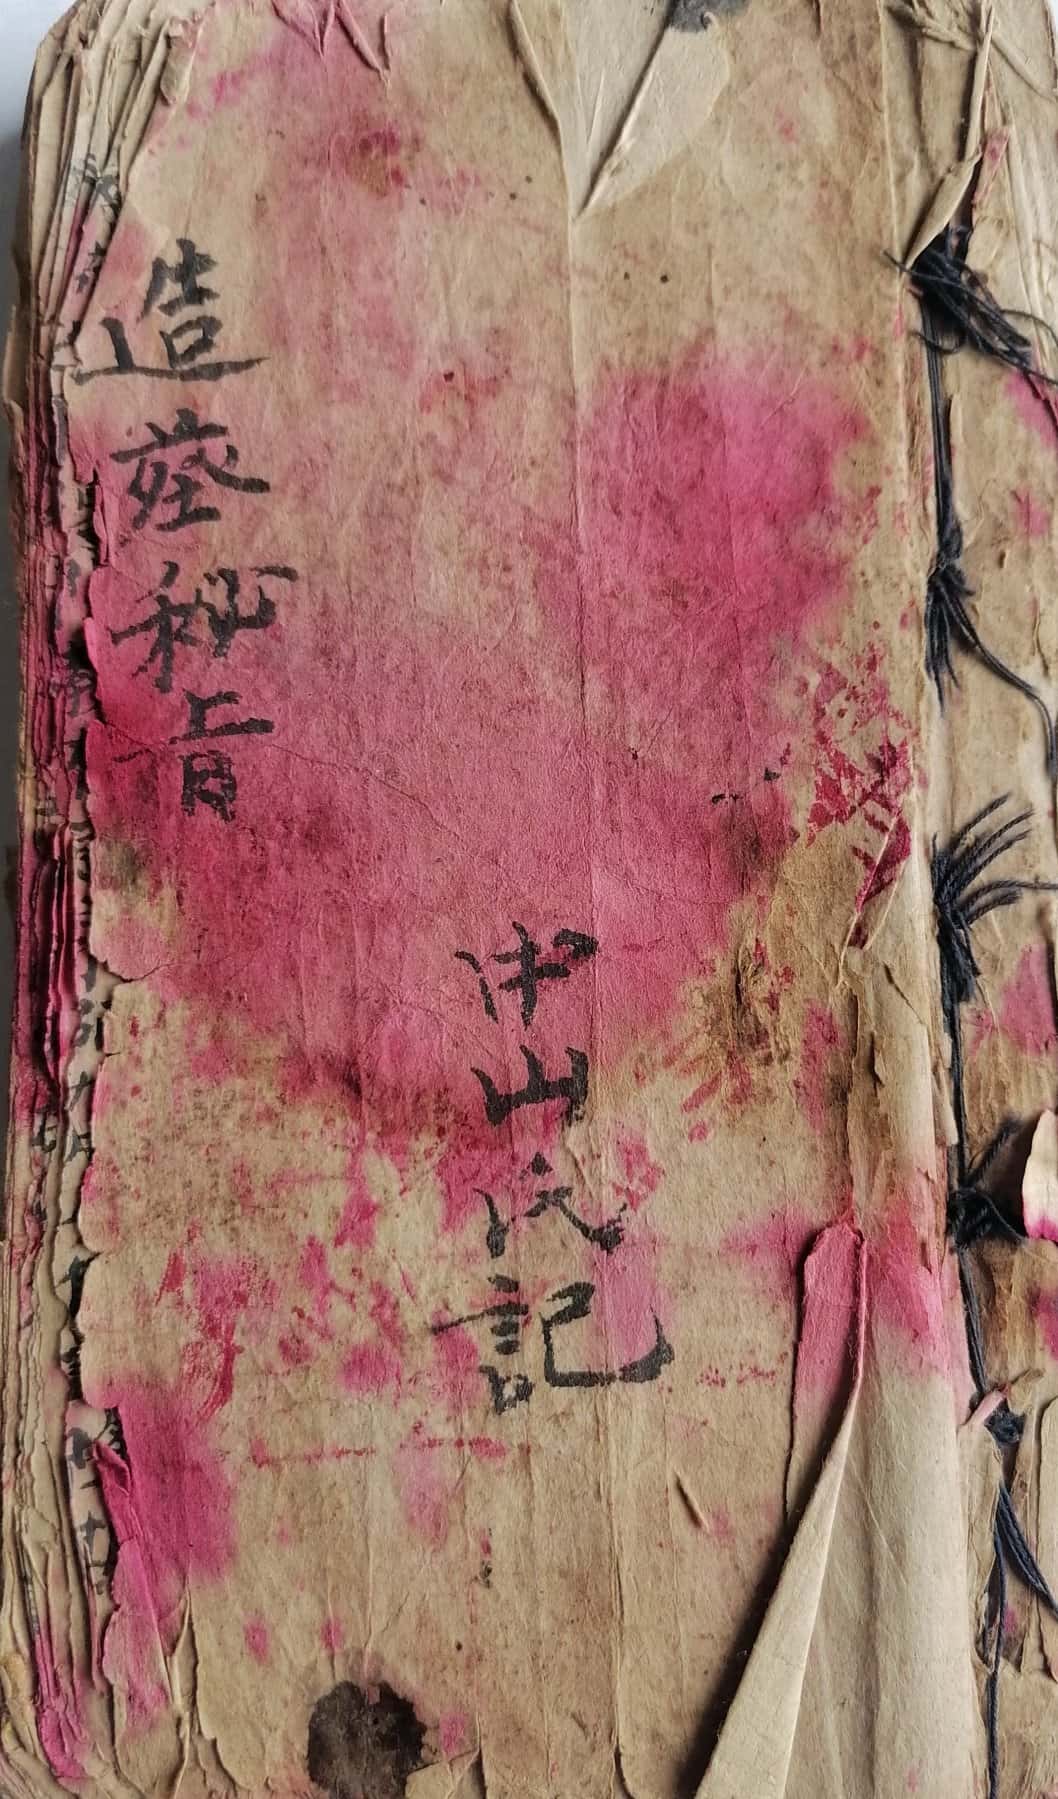 造塟秘旨
山氏記